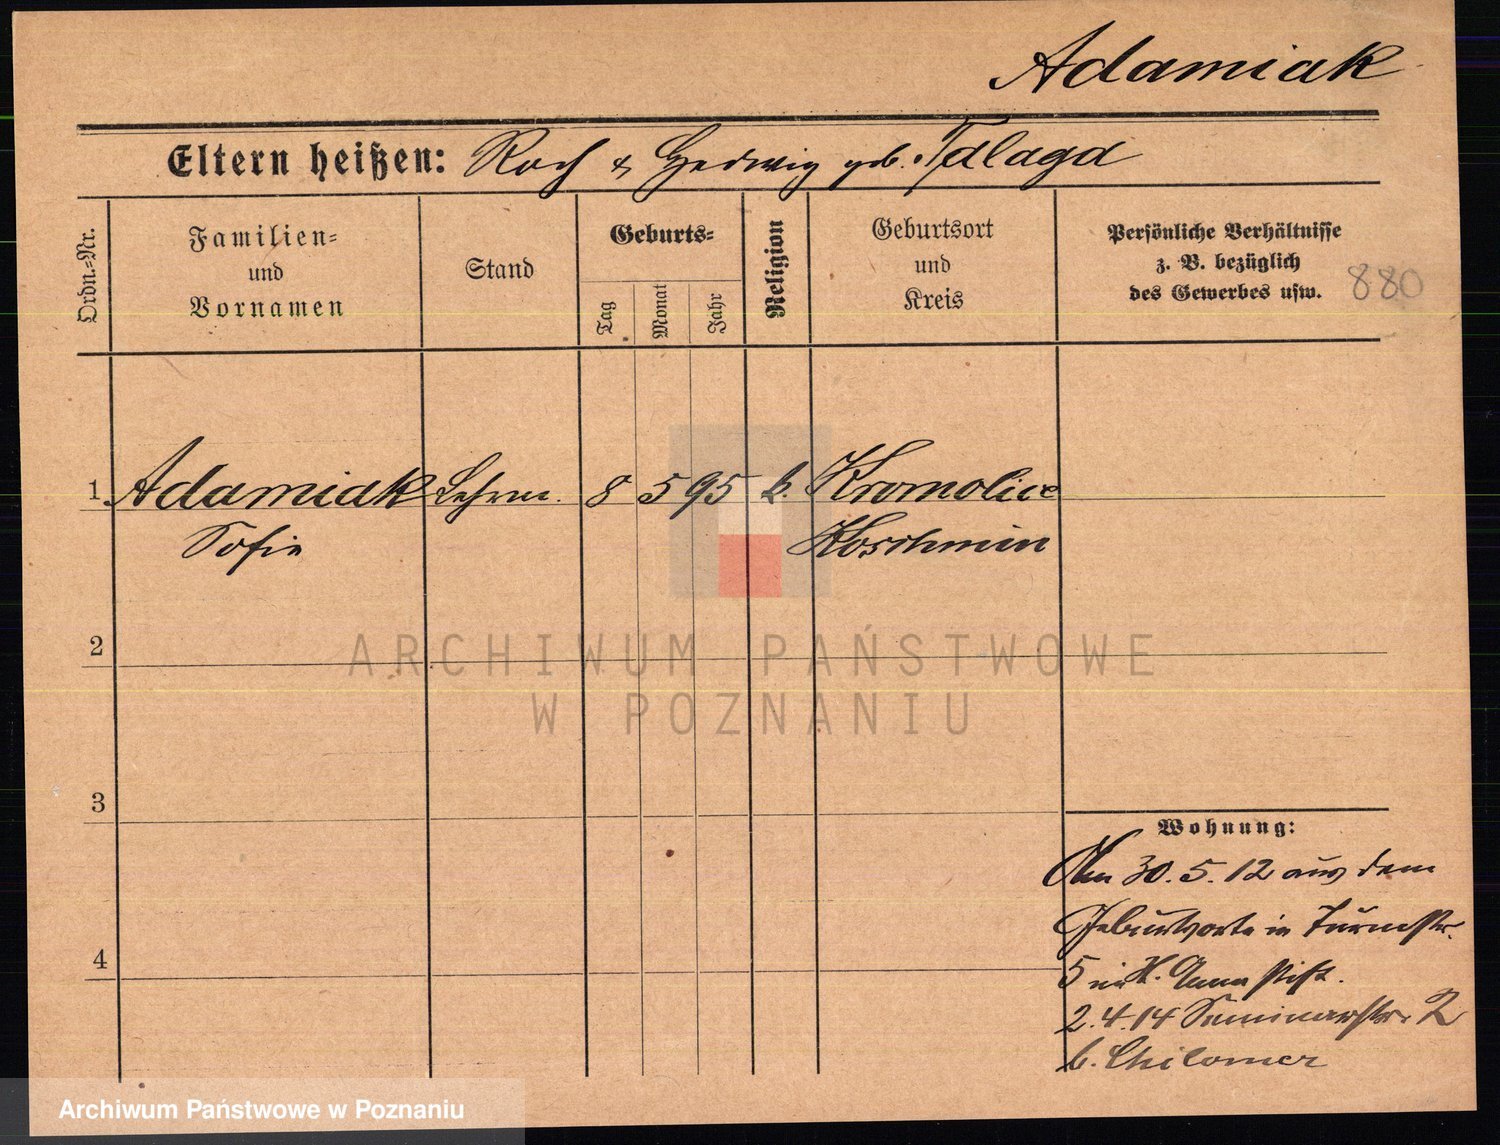 Adamiak
Eltern heißen: Roch & Hedwig geb.
Ordn.-Nr.
Familien-
und
Vornamen
Stand
Geburts-
Tag
Monat
Jahr
Religion
Geburtsort
und
Kreis
Persönliche Verhältnisse
z. B. bezüglich
des Gewerbes usw.
880
1 Adamiak Lehrm. 8 5 95 k. Kromolice
Sofie Koschmin
2
ARCHIWUM PAŃSTWOWE
W POZNANIU
3
Wohnung:
Am 30.5.12 aus dem
Geburtsorte in Turmstr.
4
5 im St. Anna Stift.
2.4.14 Seminarstr. 2
b. Chilomer
Archiwum Państwowe w Poznaniu